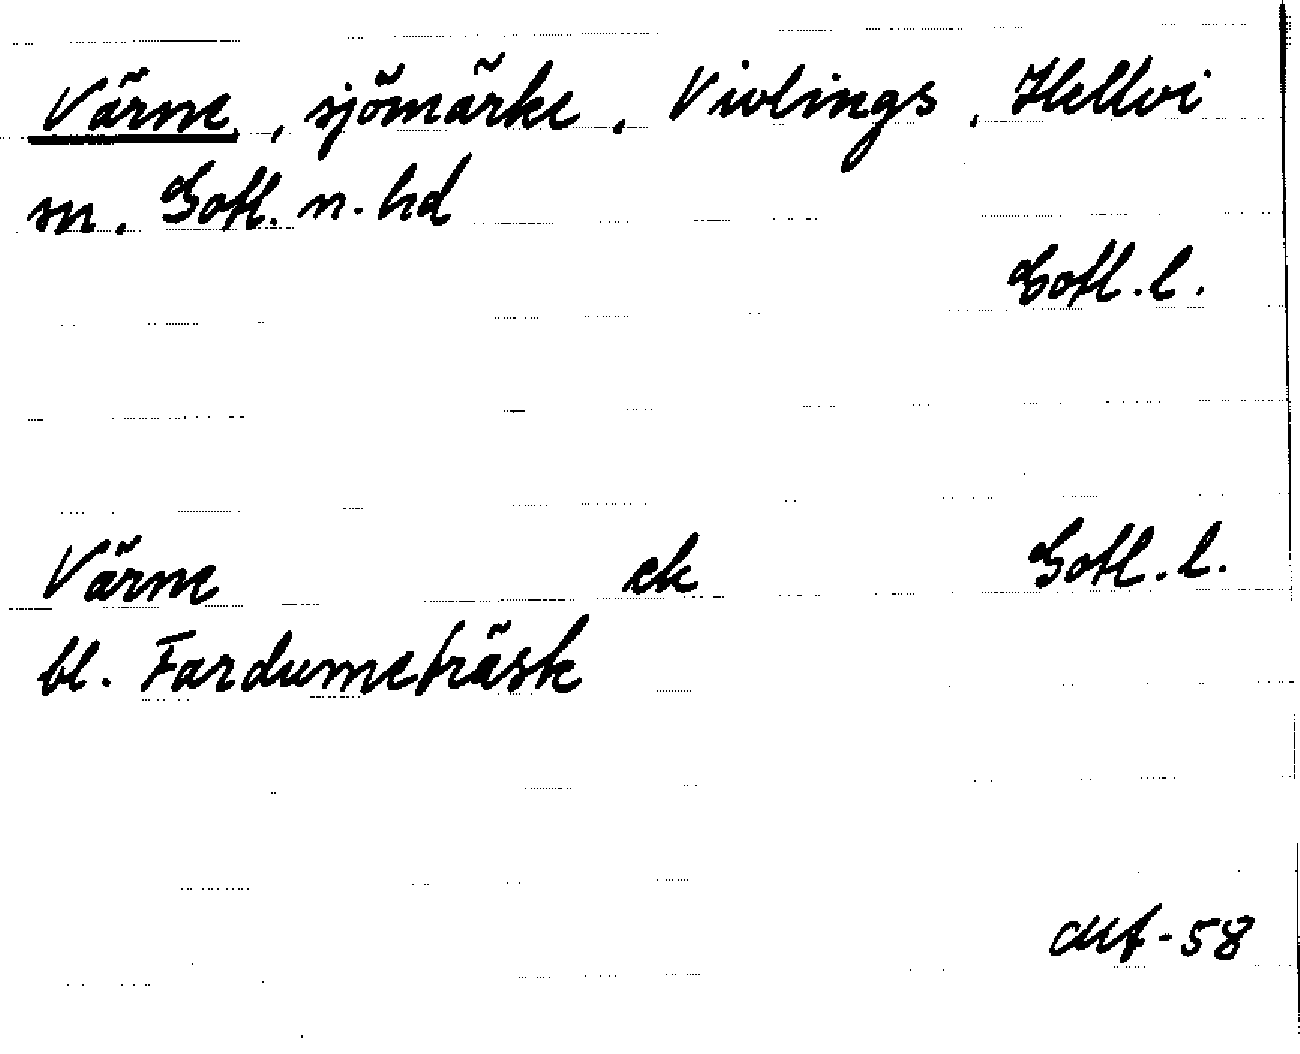 Värne, sjömärke, Vivlings, Hellvi
sn. Gotl. n. hd
Gotl. l.
Värne ek Gotl. l.
bl. Fardumeträsk
-58